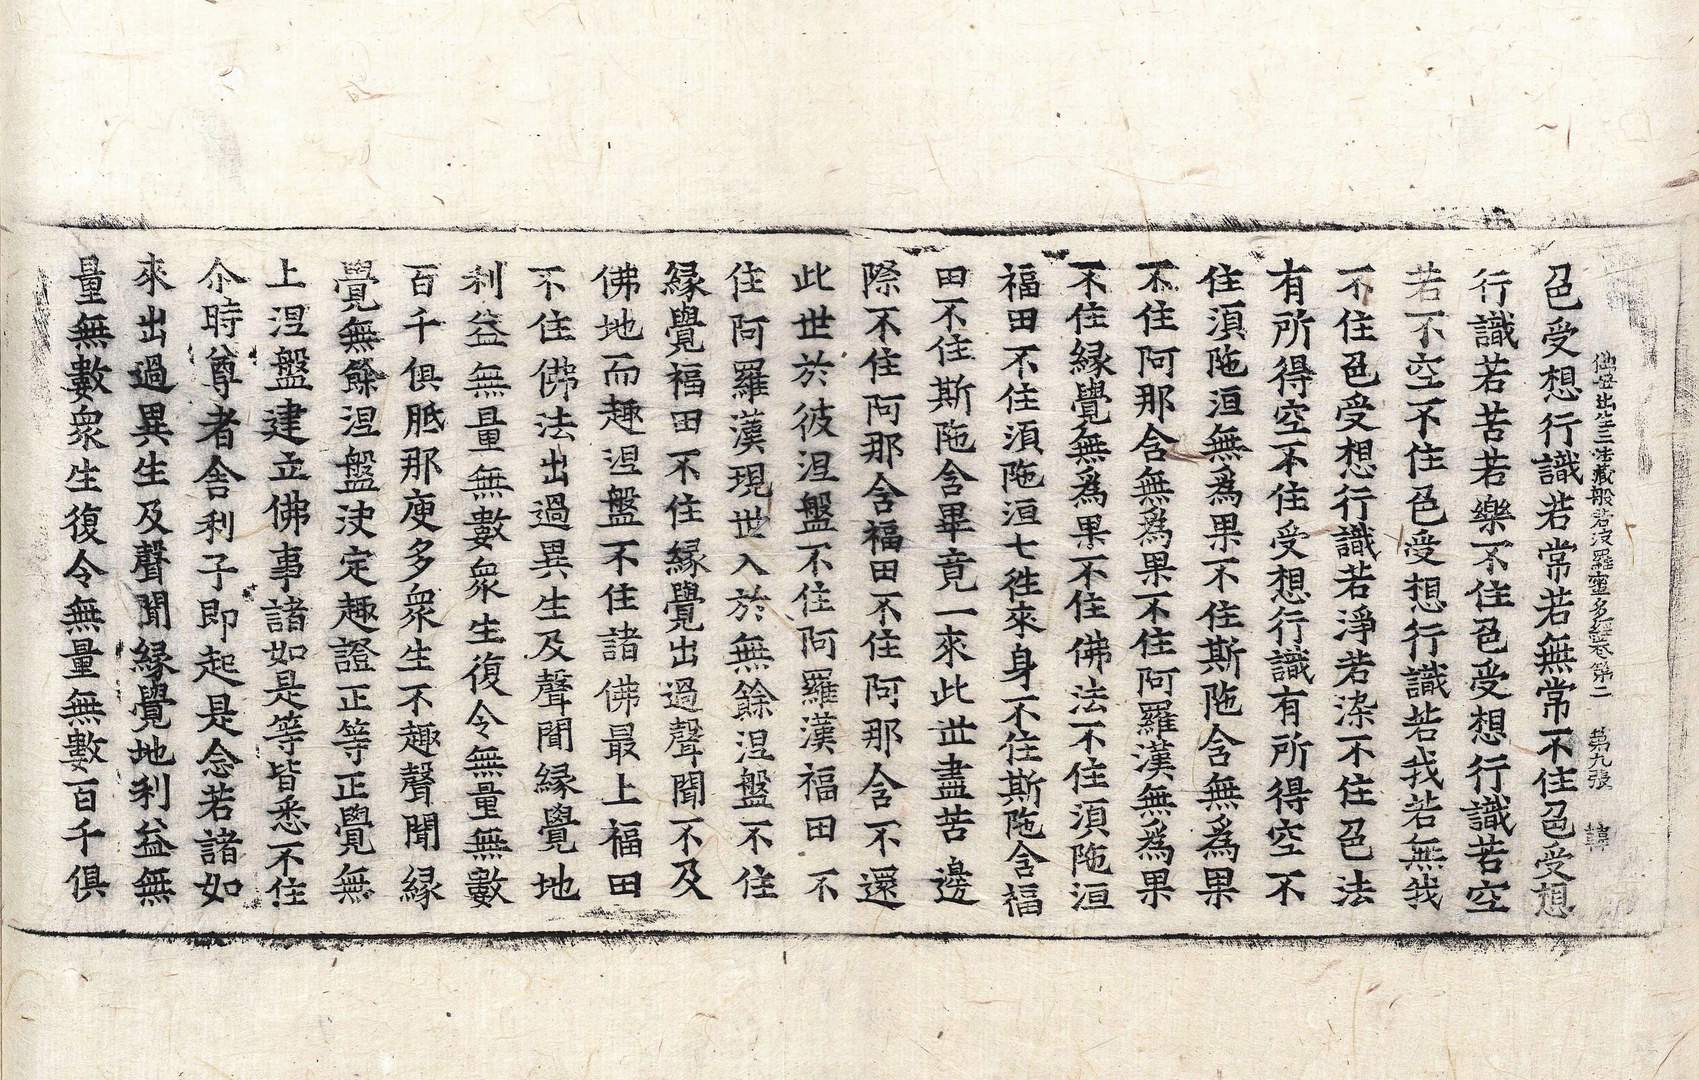 佛母出生三法藏般若波羅蜜多經卷第二 第九張 韓
色受想行識若常若無常不住色受想
行識若苦若樂不住色受想行識若空
若不空不住色受想行識若我若無我
不住色受想行識若淨若染不住色法
有所得空不住受想行識有所得空不
住湏陁洹無爲果不住斯陁含無爲果
不住阿那含無爲果不住阿羅漢無爲果
不住縁覺無爲果不住佛法不住湏陁洹
福田不住湏陁洹七徃來身不住斯陁含福
田不住斯陁含畢竟一來此世盡苦邊
際不住阿那含福田不住阿那含不還
此世於彼涅盤不住阿羅漢福田不
住阿羅漢現世入於無餘涅盤不住
縁覺福田不住縁覺出過聲聞不及
佛地而趣涅盤不住諸佛最上福田
不住佛法出過異生及聲聞縁覺地
利益無量無數衆生復令無量無數
百千俱胝那庾多衆生不趣聲聞縁
覺無餘涅盤决定趣證正等正覺無
上涅盤建立佛事諸如是等皆悉不住
尒時尊者舎利子即起是念若諸如
來出過異生及聲聞縁覺地利益無
量無數衆生復令無量無數百千俱